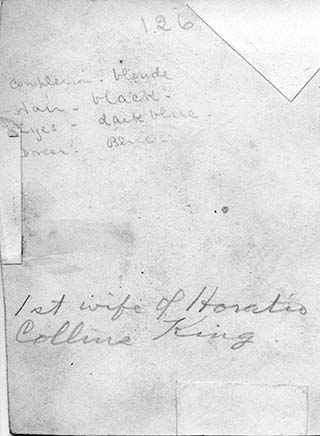 126
Complexion - blonde
Hair - black -
Eyes - dark blue -
Dress - Blue -
1st wife of Horatio
Collins King